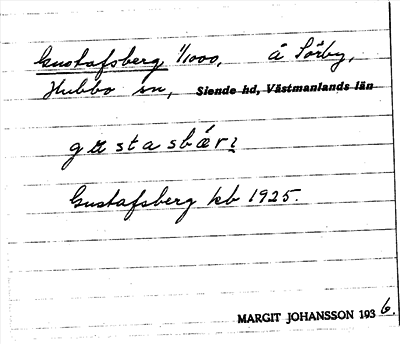 Gustafsberg 1/1000, å Sörby,
Hubbo sn, Siende hd, Västmanlands län
Gustafsberg kb 1925.
MARGIT JOHANSSON 193 6.